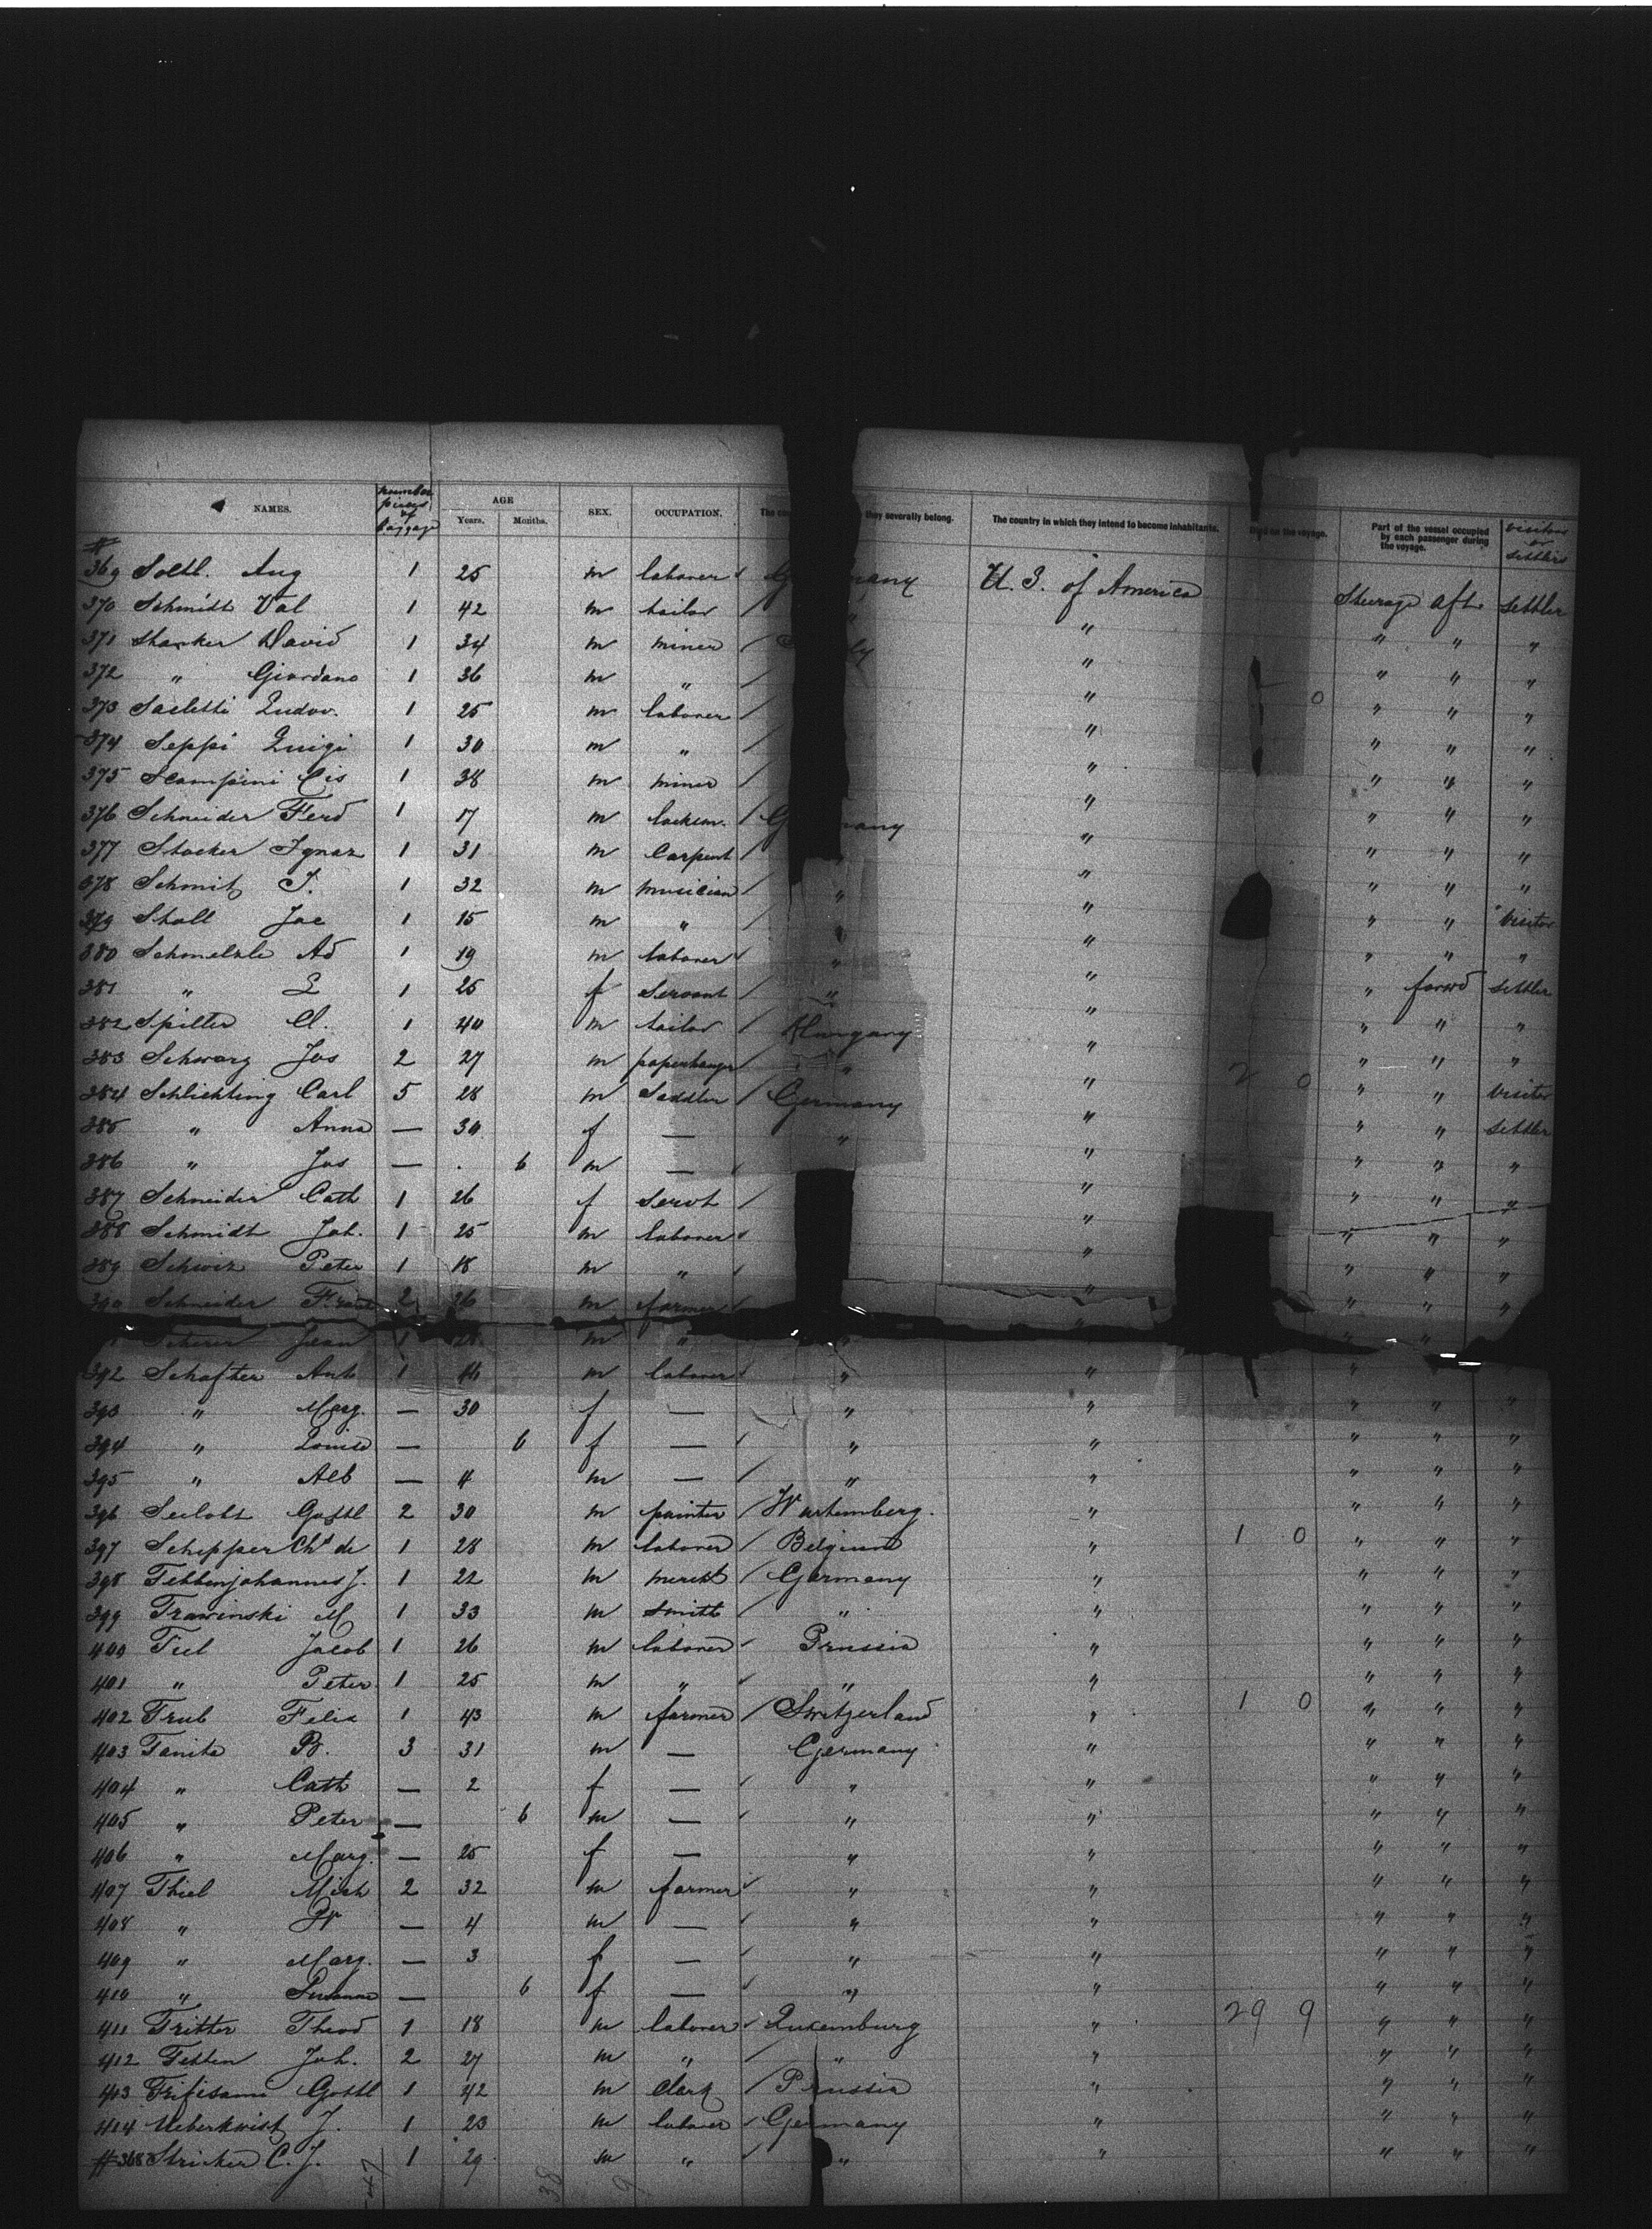 NAMES. number pieces of baggage AGE Years. Months. SEX. OCCUPATION. The cou they severally belong. The country in which they intend to become inhabitants. Died on the voyage. Part of the vessel occupied by each passenger during the voyage. visitors or settlers
#
369 Soltl. Aug 1 25 m laborer G many U. S. of America Steerage aft settler
370 Schmidt Val 1 42 m tailor / " " " "
371 Sharker David 1 34 m miner / ly " " " "
372 " Giordano 1 36 m " / " 0 " " "
373 Sacletti Ludov. 1 25 m laborer / " " " "
374 Seppi Luigi 1 30 m " / " " " "
375 Scampini Cis 1 38 m miner / " " " "
376 Schneider Ferd 1 17 m lockem. G many " " " "
377 Stocker Ignaz 1 31 m Carpent / " " " "
378 Schmitz J. 1 32 m musician / " " " " "
379 Stoll Jac 1 15 m " / " " " visitor
380 Schmelzle Ad 1 19 m laborer " " " " "
381 " L 1 25 f Servant / " " " forwd settler
382 Spitter A. 1 40 m tailor / Hungary " " " "
383 Schwarz Jos 2 27 m paperhanger / " " 2 0 " " "
384 Schlichting Carl 5 28 m Saddler / Germany " " " visitor
385 " Anna — 30 f — " " " " settler
386 " Jos — 6 m — " " " "
387 Schneider Cath 1 26 f Servt / " " " "
388 Schmidt Joh. 1 25 m laborer " " " "
389 Schwiz Peter 1 18 m " " " " "
390 Schneider Franz 2 26 m farmer / " " " "
Scherer Jean 1 m " " " " "
392 Schafter Ant 1 46 m laborer " " " "
393 " Marg. — 30 f — " " " " "
394 " Louise — 6 f — " " " " "
395 " Alb — 4 m — / " " " " "
396 Seelott Gottl 2 30 m painter / Wurtemberg. " " " "
397 Schepper Chs de 1 28 m laborer / Belgium " 1 0 " " "
398 Tebbenjohannes J. 1 22 m mercht / Germany " " " "
399 Trawinski M 1 33 m Smith / " " " " "
400 Tiel Jacob 1 26 m laborer Prussia " " " "
401 " Peter 1 25 m " " " " " "
402 Trub Felix 1 43 m farmer / Switzerland " 1 0 " " "
403 Tanite B. 3 31 m — Germany " " " "
404 " Cath — 2 f — " " " " "
405 " Peter — 6 m — " " " " "
406 " Marg. — 25 f — " " " " "
407 Thiel Mich 2 32 m farmer " " " " "
408 " W — 4 m — " " " " "
409 " Marg. — 3 f — " " " " "
410 " Susanne — 6 f — " " " " "
411 Tritter Theod 1 18 m laborer Luxemburg " 29 9 " " "
412 Tetten Joh. 2 27 m " / " " " " "
413 Gottl 1 42 m Clark / Prussia " " " "
414 Ueberkwist J. 1 23 m laborer Germany " " " "
#368 Stricker C. J. 1 29 m " " " " " "
47 38 9